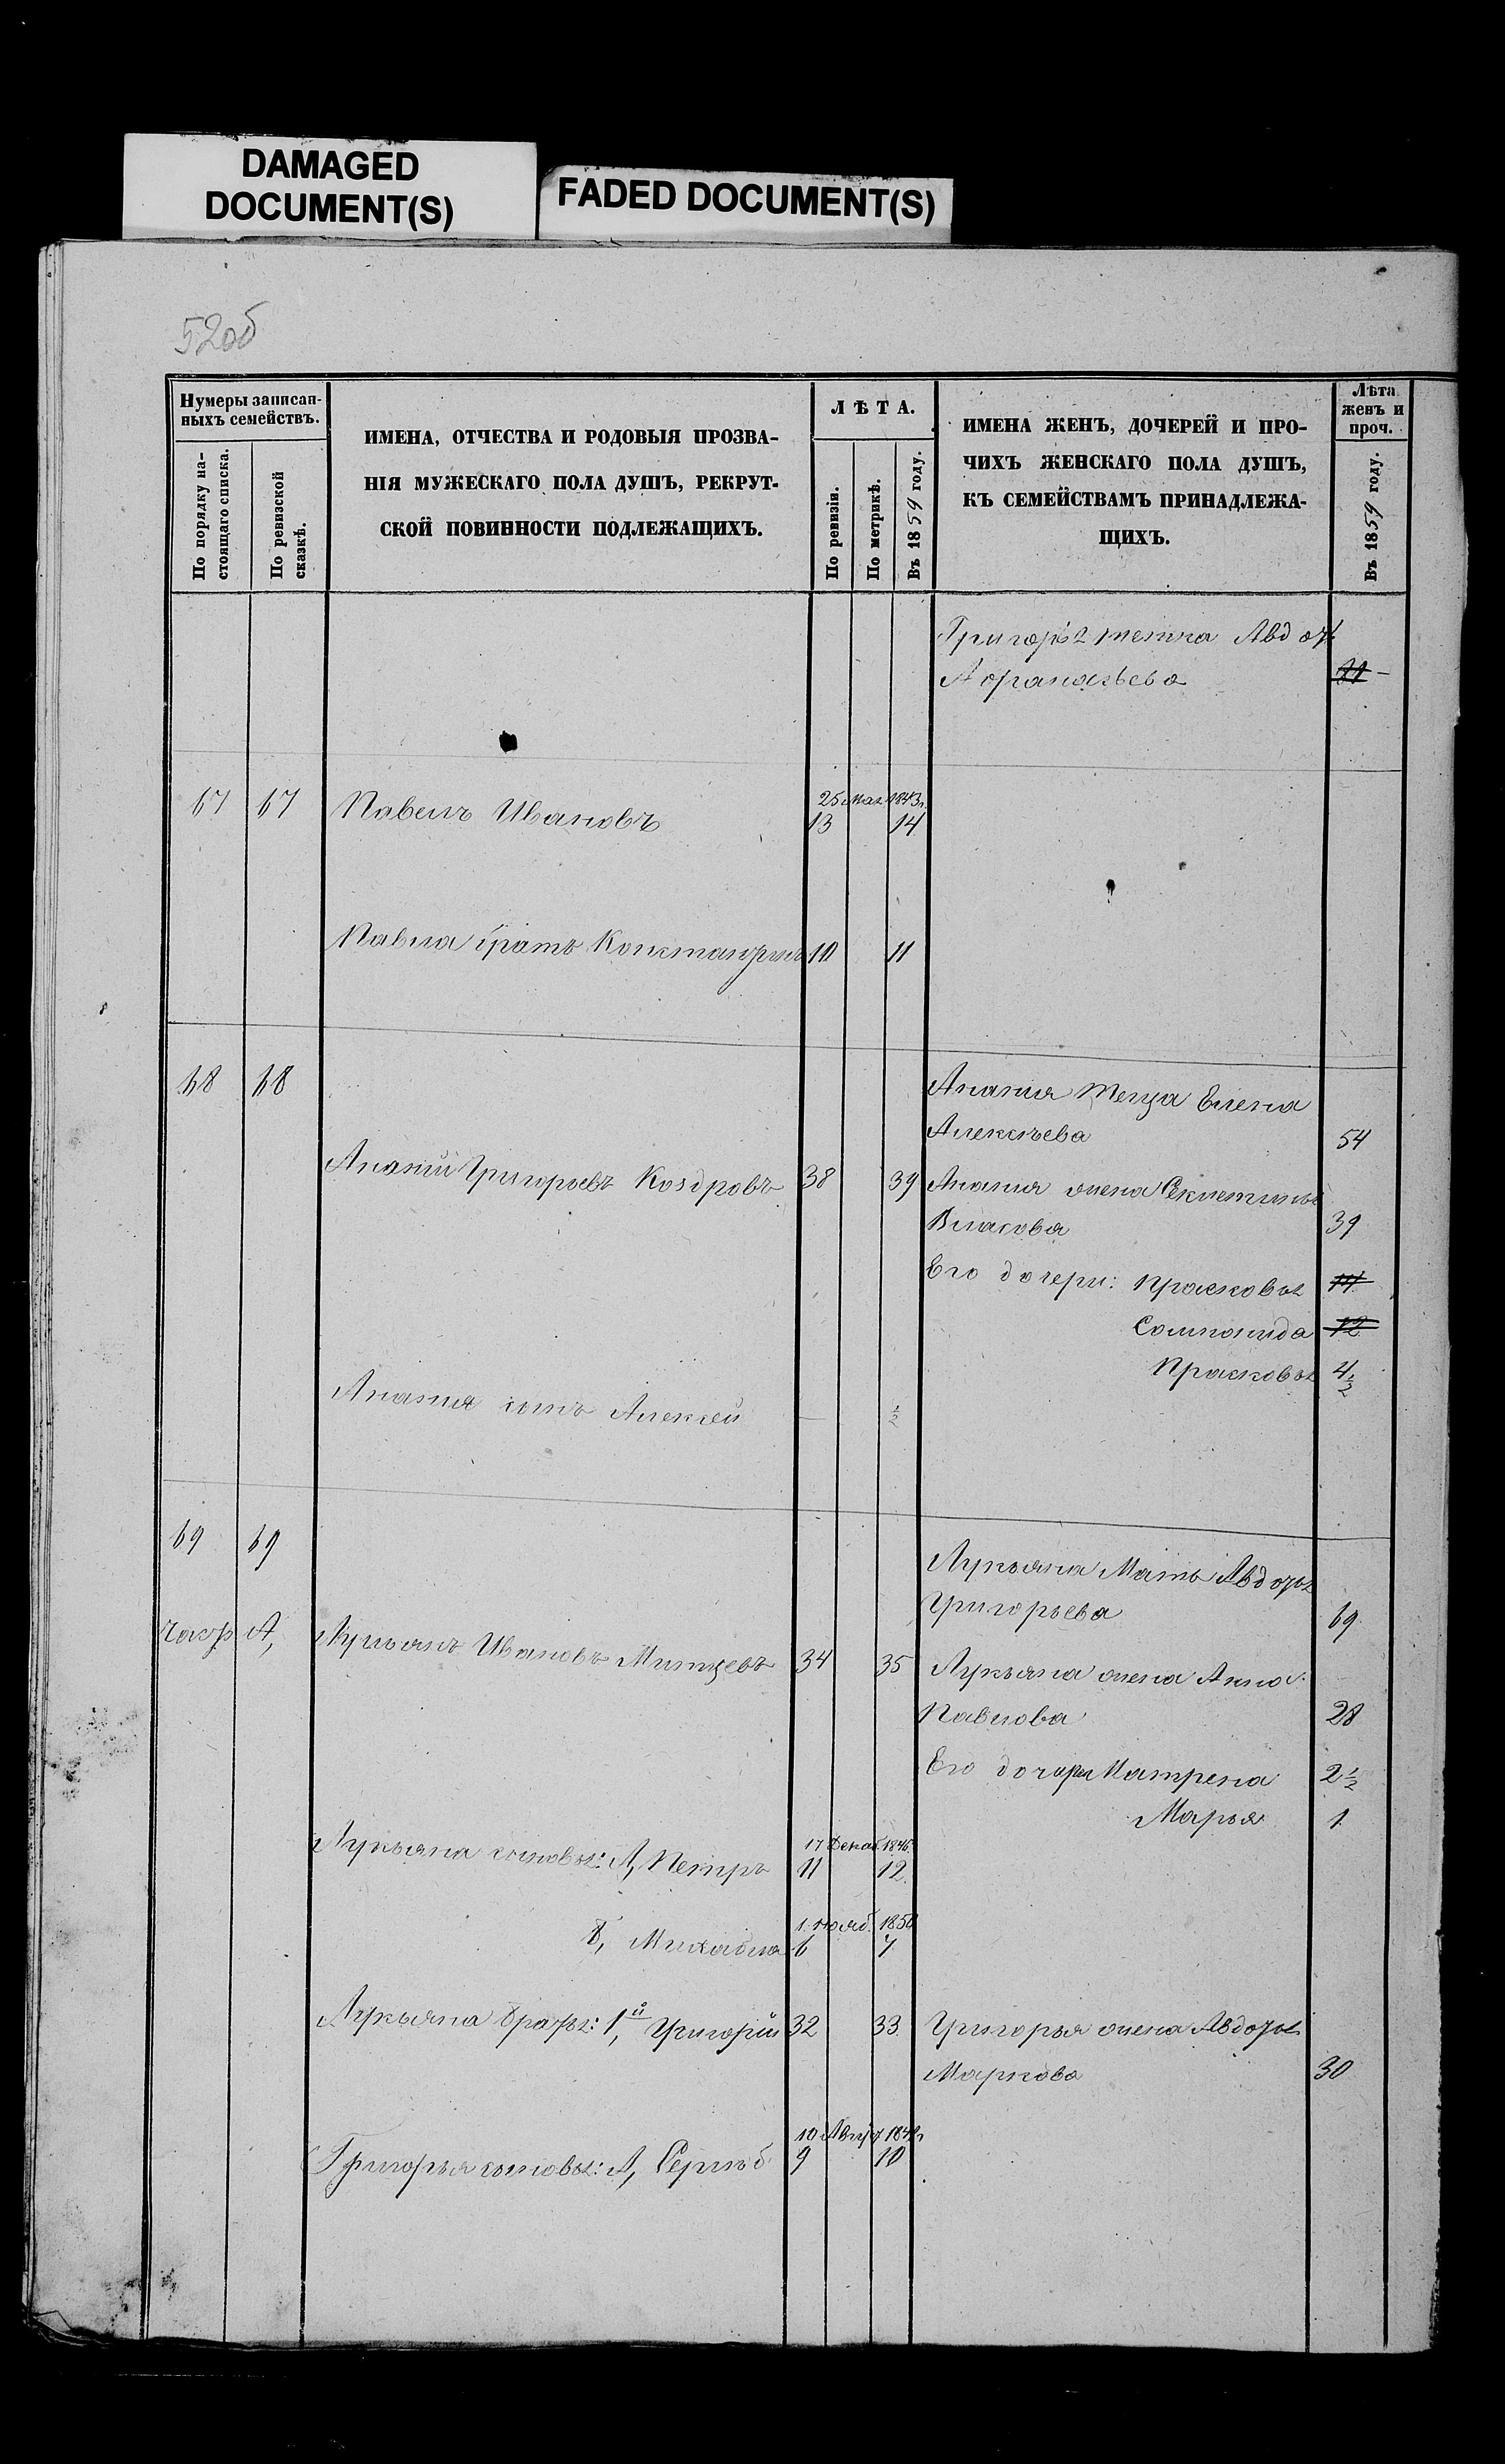 DAMAGED
DOCUMENT(S)
FADED DOCUMENT(S)
52об
Нумеры записан-
ныхъ семействъ.
По порядку на-
стоящаго списка.
По ревизской
сказкѣ.
ИМЕНА, ОТЧЕСТВА И РОДОВЫЯ ПРОЗВА-
НІЯ МУЖЕСКАГО ПОЛА ДУШЪ, РЕКРУТ-
СКОЙ ПОВИННОСТИ ПОДЛЕЖАЩИХЪ.
ЛѢТА.
По ревизіи.
По метрикѣ.
Въ 1859 году.
ИМЕНА ЖЕНЪ, ДОЧЕРЕЙ И ПРО-
ЧИХЪ ЖЕНСКАГО ПОЛА ДУШЪ,
КЪ СЕМЕЙСТВАМЪ ПРИНАДЛЕЖА-
ЩИХЪ.
Лѣта
женъ и
проч.
Въ 1859 году.
Григорья тетка Авдот.
Афанасьева
67 67 Павелъ Ивановъ 25 мая 1843г.
13 14
Павла братъ Константинъ 10 11
68 68
Ананія теща Елена
Алексѣева 54
Ананій Григорьевъ Коздровъ 38 39 Ананія жена
Власова 39
Его дочери: Прасковья 14
Соломонида 12
Прасковья 4 1/2
Ананія сынъ Алексей — 1/2
69 69
Лукьяна Мать Авдотья
Григорьева 69
А, Лукьянъ Ивановъ 34 35 Лукьяна жена Анна
Павлова 28
Его дочери Матрена 2 1/2
Марья 1
Лукьяна сыновья: А, Петръ 17 Декаб. 1846
11 12
Б, Михайла 1 Нояб. 1850
6 7
Лукьяна братья: 1й, Григорій 32 33 Григорья жена Авдотья
Маркова 30
Григорья сыновья: А, Сергѣй 10
9 10